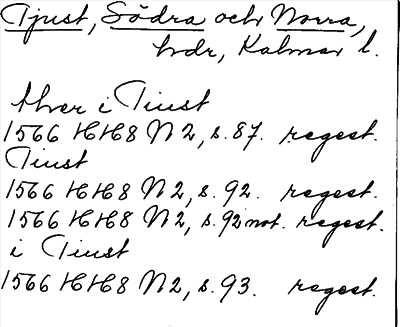 Tjust, Södra och Norra,
hdr, Kalmar l.
thver i Tiust
1566 HH8 N2, s. 87. regest.
Tiust
1566 HH8 N2, s. 92. regest.
1566 HH8 N2, s. 92 not. regest.
i Tiust
1566 HH8 N2, s. 93. regest.